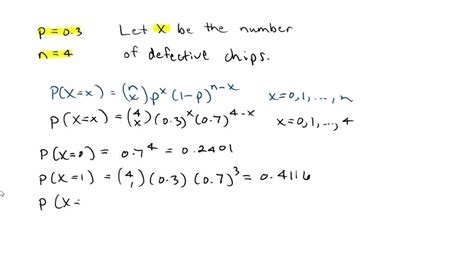 p = 0.3 Let X be the number
n = 4 of defective chips.
P(X=x) = (n x) p^x (1-p)^{n-x} x=0,1,...,n
P(X=x) = (4 x) (0.3)^x (0.7)^{4-x} x=0,1,...,4
P(X=0) = 0.7^4 = 0.2401
P(X=1) = (4 1) (0.3) (0.7)^3 = 0.4116
P(X=